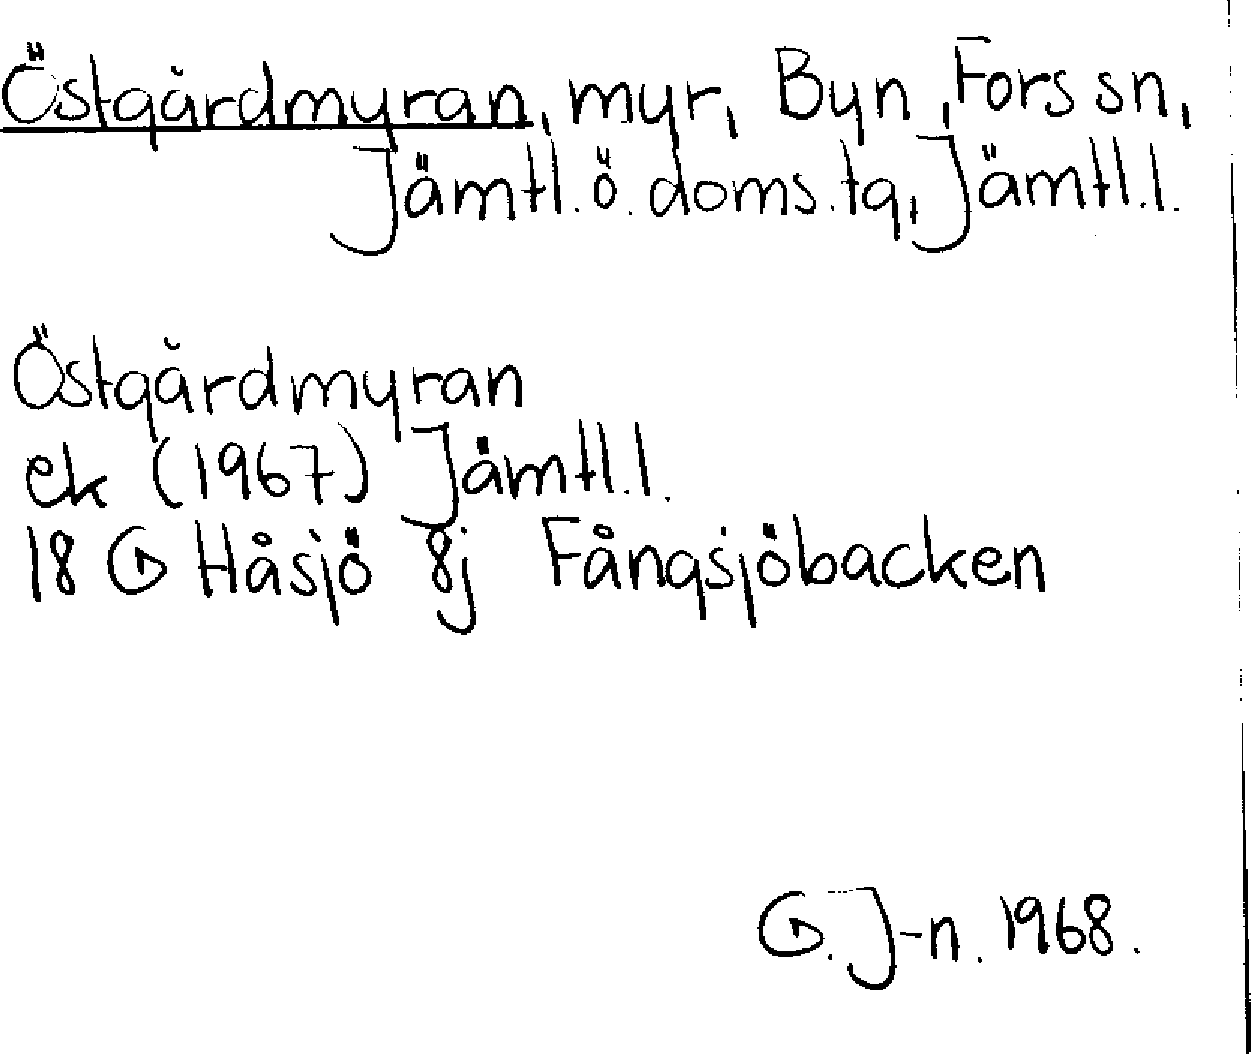 Östgårdmyran, myr, Byn, Fors sn,
Jämtl. ö. doms. tg, Jämtl. l.
Östgårdmyran
ek (1967) Jämtl. l.
18 G Håsjö 8j Fångsjöbacken
G. J-n. 1968.